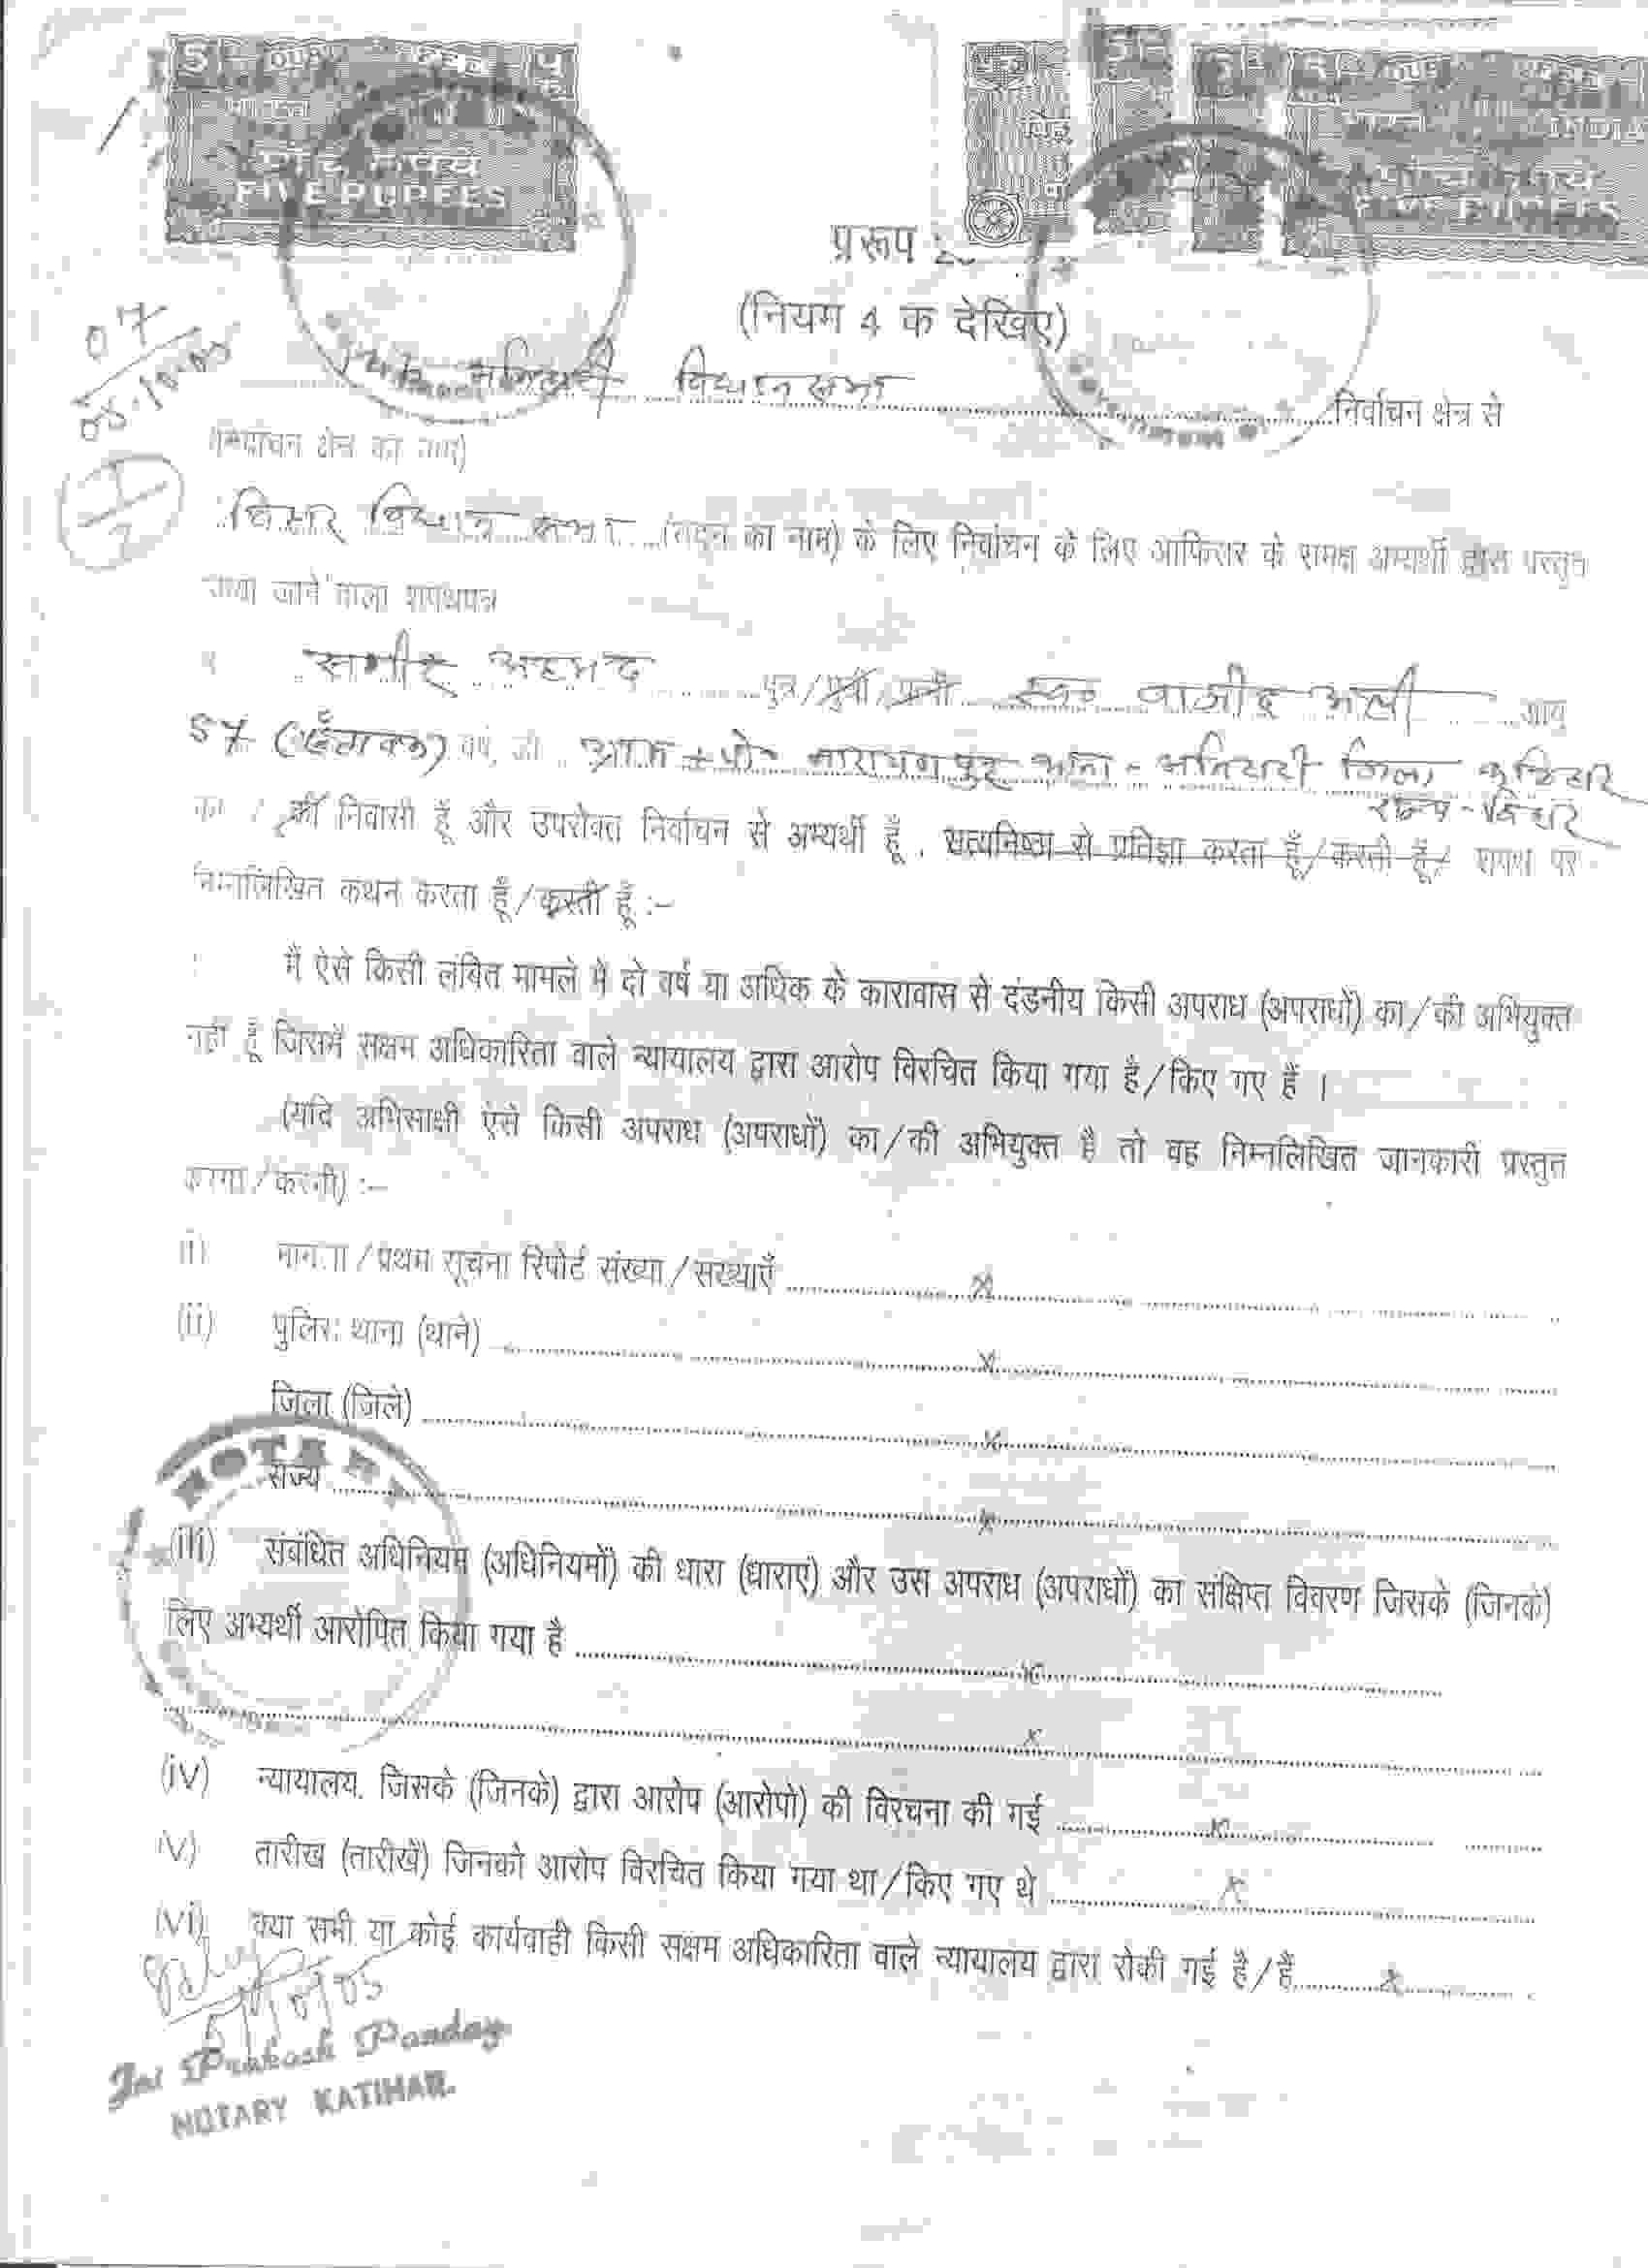 FIVE RUPEES
पाँच रुपये
प्रारूप
(नियम 4 क देखिए)
07
विधान सभा निर्वाचन क्षेत्र से
(निर्वाचन क्षेत्र का नाम)
बिहार विधान सभा (सदन का नाम) के लिए निर्वाचन के लिए आफिसर के समक्ष अभ्यर्थी द्वारा प्रस्तुत
किया जाने वाला शपथपत्र
अहमद पुत्र/पुत्री/पत्नी स्व० वाजीद अली आयु
57 वर्ष, जो ग्राम + पो० नारायणपुर थाना - मनिहारी जिला कटिहार
राज्य - बिहार
का / की निवासी हूँ और उपरोक्त निर्वाचन से अभ्यर्थी हूँ , सत्यनिष्ठा से प्रतिज्ञा करता हूँ/करती हूँ/ शपथ पर
निम्नलिखित कथन करता हूँ/करती हूँ :–
मैं ऐसे किसी लंबित मामले में दो वर्ष या अधिक के कारावास से दंडनीय किसी अपराध (अपराधों) का/की अभियुक्त
नहीं हूँ जिसमें सक्षम अधिकारिता वाले न्यायालय द्वारा आरोप विरचित किया गया है/किए गए हैं ।
(यदि अभिसाक्षी ऐसे किसी अपराध (अपराधों) का/की अभियुक्त है तो वह निम्नलिखित जानकारी प्रस्तुत
करेगा/करेगी) :–
(i) मामला/प्रथम सूचना रिपोर्ट संख्या/संख्याएँ x
(ii) पुलिस थाना (थाने) x
जिला (जिले) x
राज्य x
NOTARY
(iii) संबंधित अधिनियम (अधिनियमों) की धारा (धाराएं) और उस अपराध (अपराधों) का संक्षिप्त विवरण जिसके (जिनके)
लिए अभ्यर्थी आरोपित किया गया है x
x
(iv) न्यायालय, जिसके (जिनके) द्वारा आरोप (आरोपों) की विरचना की गई x
(v) तारीख (तारीखें) जिनको आरोप विरचित किया गया था/किए गए थे x
(vi) क्या सभी या कोई कार्यवाही किसी सक्षम अधिकारिता वाले न्यायालय द्वारा रोकी गई है/हैं x
Jai Prakash Panday
NOTARY KATIHAR.